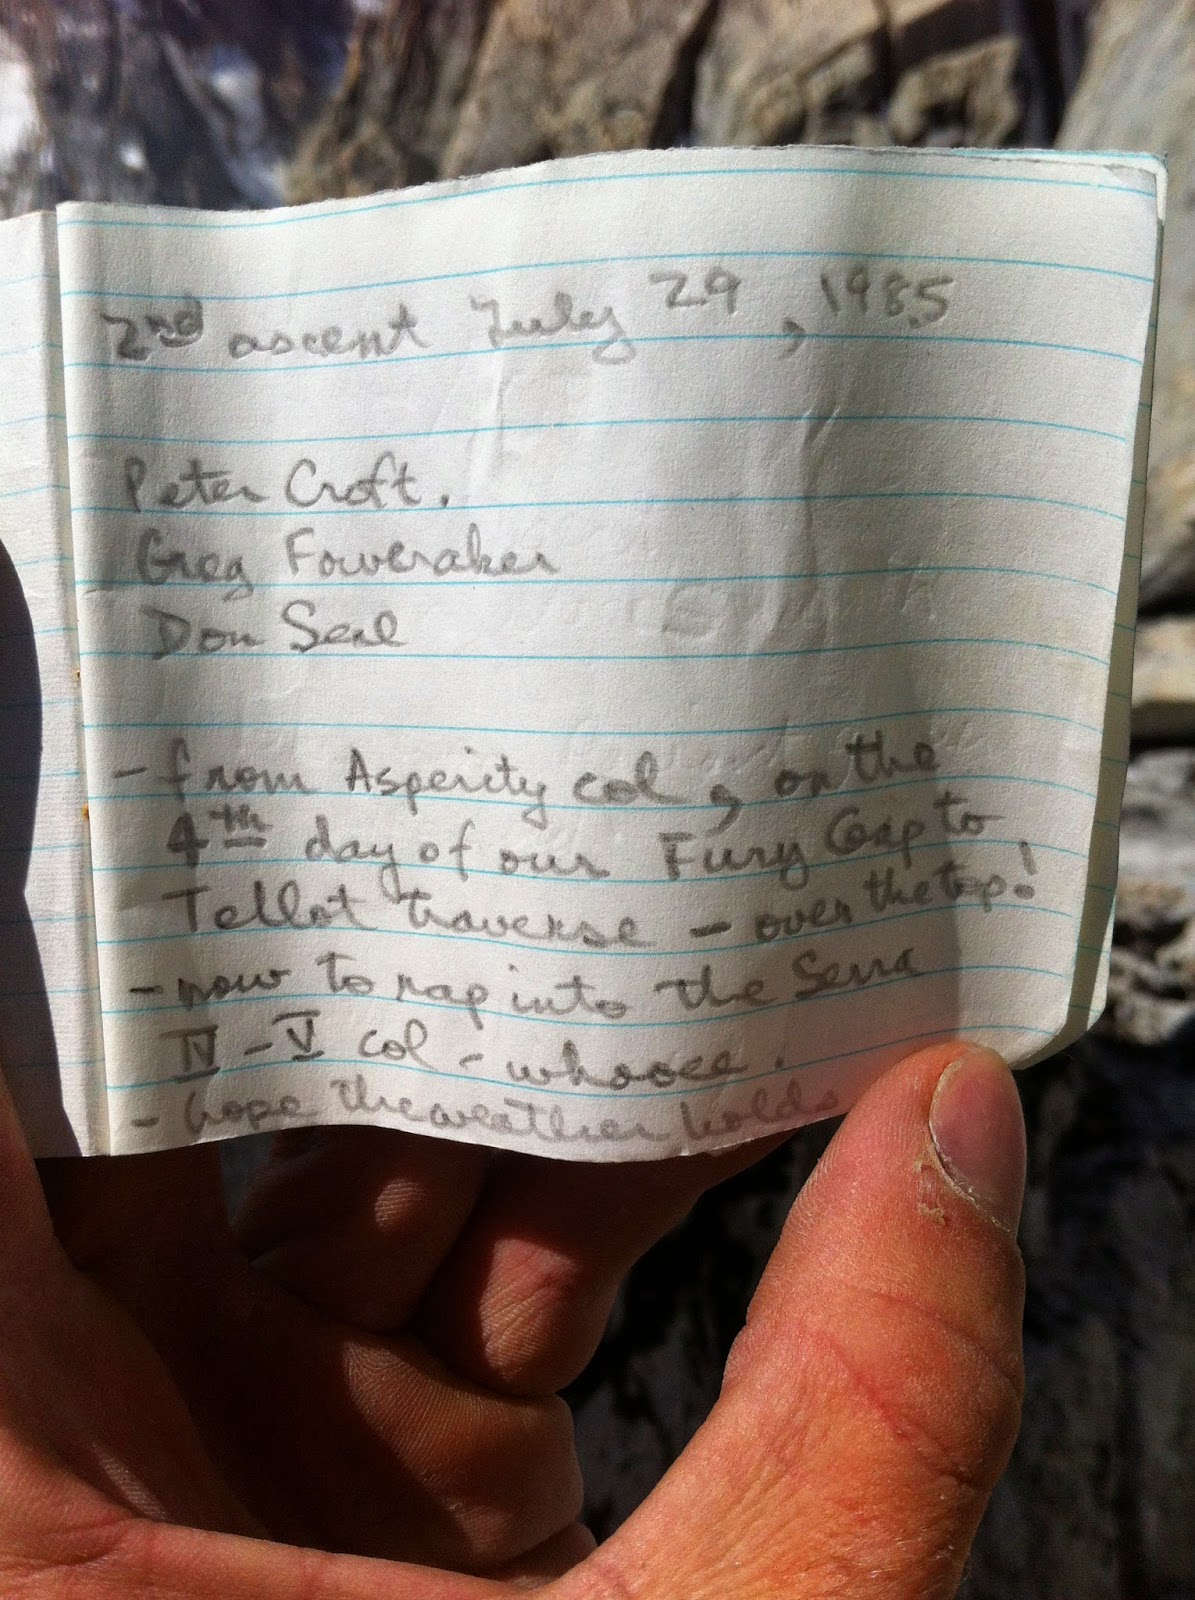 2nd ascent July 29, 1985
Peter Croft.
Greg Foweraker
Don Serl
- from Asperity col, on the
4th day of our Fury Gap to
Tellot traverse - over the top!
- now to rap into the Serra
IV - V col - whooee.
- hope the weather holds